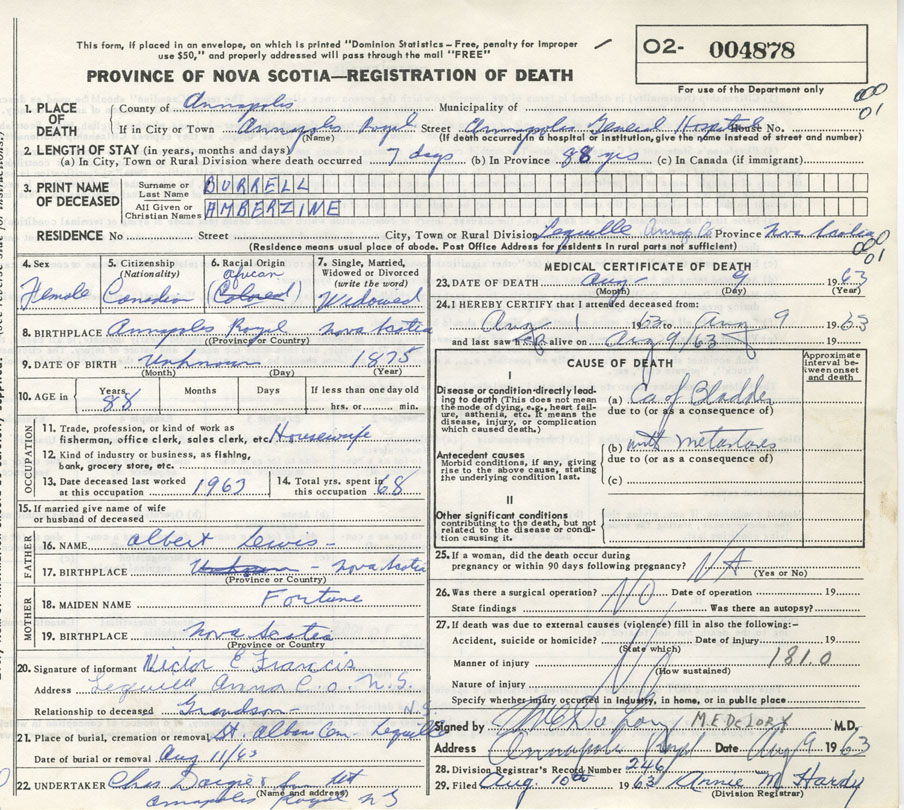 This form, if placed in an envelope, on which is printed "Dominion Statistics – Free, penalty for improper
use $50," and properly addressed will pass through the mail "FREE"
O2- 004878
PROVINCE OF NOVA SCOTIA—REGISTRATION OF DEATH
For use of the Department only
000
01
1. PLACE OF DEATH
County of Annapolis Municipality of
If in City or Town Annapolis Royal Street Annapolis General Hospital House No.
(Name) (If death occurred in a hospital or institution, give the name instead of street and number)
2. LENGTH OF STAY (in years, months and days)
(a) In City, Town or Rural Division where death occurred 7 days (b) In Province 88 yrs (c) In Canada (if immigrant)
3. PRINT NAME OF DECEASED
Surname or Last Name BURRELL
All Given or Christian Names AMBERZINE
RESIDENCE No Street City, Town or Rural Division Lequille Anna Co. Province Nova Scotia
(Residence means usual place of abode. Post Office Address for residents in rural parts not sufficient)
000
01
4. Sex Female
5. Citizenship (Nationality) Canadian
6. Racial Origin African (Colored)
7. Single, Married, Widowed or Divorced (write the word) Widowed
8. BIRTHPLACE Annapolis Royal Nova Scotia
(Province or Country)
9. DATE OF BIRTH Unknown 1875
(Month) (Day) (Year)
10. AGE in Years 88 Months Days If less than one day old
hrs. or min.
OCCUPATION
11. Trade, profession, or kind of work as
fisherman, office clerk, sales clerk, etc. Housewife
12. Kind of industry or business, as fishing,
bank, grocery store, etc.
13. Date deceased last worked
at this occupation 1963
14. Total yrs. spent in
this occupation 68
15. If married give name of wife
or husband of deceased
FATHER
16. NAME Albert Lewis
17. BIRTHPLACE Unknown - Nova Scotia
(Province or Country)
MOTHER
18. MAIDEN NAME Fortune
19. BIRTHPLACE Nova Scotia
(Province or Country)
20. Signature of informant Victor E Francis
Address Lequille Anna C.o. N.S.
Relationship to deceased Grandson N.S
21. Place of burial, cremation or removal St. Alban Cem. Lequille
Date of burial or removal Aug 11/63
22. UNDERTAKER Chas
(Name and address)
Annapolis Royal NS
MEDICAL CERTIFICATE OF DEATH
23. DATE OF DEATH Aug- 9 1963
(Month) (Day) (Year)
24. I HEREBY CERTIFY that I attended deceased from:
Aug 1 1963 to Aug 9 1963
and last saw her alive on Aug 9/63 19
CAUSE OF DEATH
Approximate interval between onset and death
I
Disease or condition directly leading to death (This does not mean the mode of dying, e.g., heart failure, asthenia, etc. It means the disease, injury, or complication which caused death.)
(a) Ca of Bladder
due to (or as a consequence of)
Antecedent causes
Morbid conditions, if any, giving rise to the above cause, stating the underlying condition last.
(b) with metastases
due to (or as a consequence of)
(c)
II
Other significant conditions
contributing to the death, but not related to the disease or condition causing it.
25. If a woman, did the death occur during
pregnancy or within 90 days following pregnancy? NA
(Yes or No)
26. Was there a surgical operation? NO Date of operation 19
State findings Was there an autopsy?
27. If death was due to external causes (violence) fill in also the following:-
Accident, suicide or homicide? Date of injury 19
(State which)
Manner of injury 181.0
(How sustained)
Nature of injury No
Specify whether injury occurred in industry, in home, or in public place
Signed by M E DeLory M.E. DELORY M.D.
Address Annapolis Royal Date Aug 9 1963
28. Division Registrar's Record Number 246
29. Filed Aug. 10th 1963 Annie M Hardy
(Division Registrar)